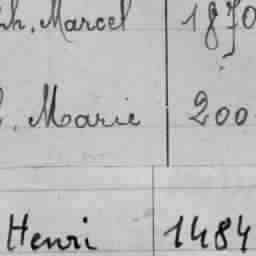 Ch. Marcel 1870
. Marie 200
Henri 1484